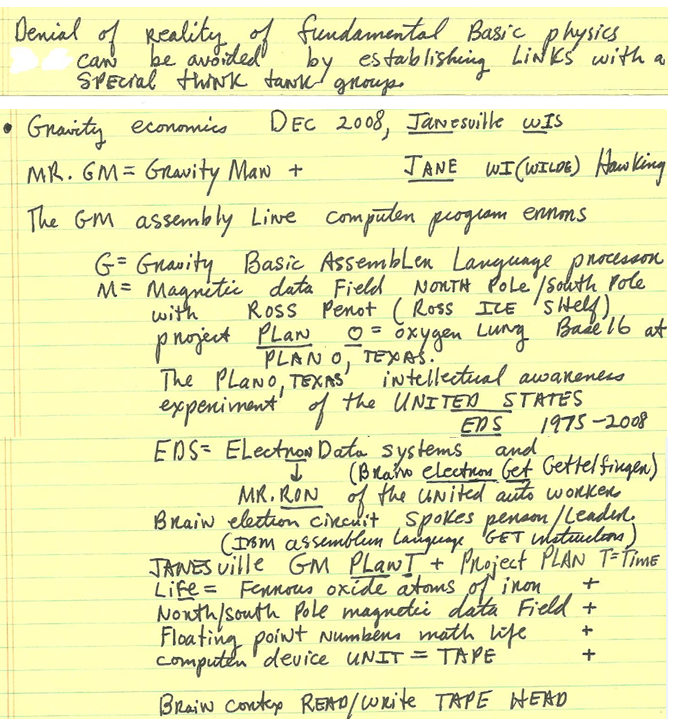 Denial of reality of fundamental Basic physics
can be avoided by establishing LiNKS with a
SPECial think tank groups
• Gravity economics DEC 2008, Janesville WIS
MR. GM= Gravity Man + JANE WI(WILDE) Hawking
The GM assembly Line computer program errors
G= Gravity Basic Assembler Language processor
M= Magnetic data Field NORTH Pole/South Pole
with Ross Perot (Ross ICE Shelf)
project PLAN O= oxygen Lung Base 16 at
PLANO, TEXAS.
The PLANO, TEXAS intellectual awareness
experiment of the UNITED STATES
EDS 1975-2008
EDS= ELectron Data systems and
↓ (Brain electron Get Gettelfinger)
MR. RON of the united auto workers
Brain electron circuit spokes person/Leader
(IBM assembler Language GET instruction)
JANESville GM PLANT + Project PLAN T=TIME
LiFe= Ferrous oxide atoms of iron +
North/south Pole magnetic data Field +
Floating point Numbers math life +
computer device UNIT = TAPE +
Brain cortex READ/write TAPE HEAD